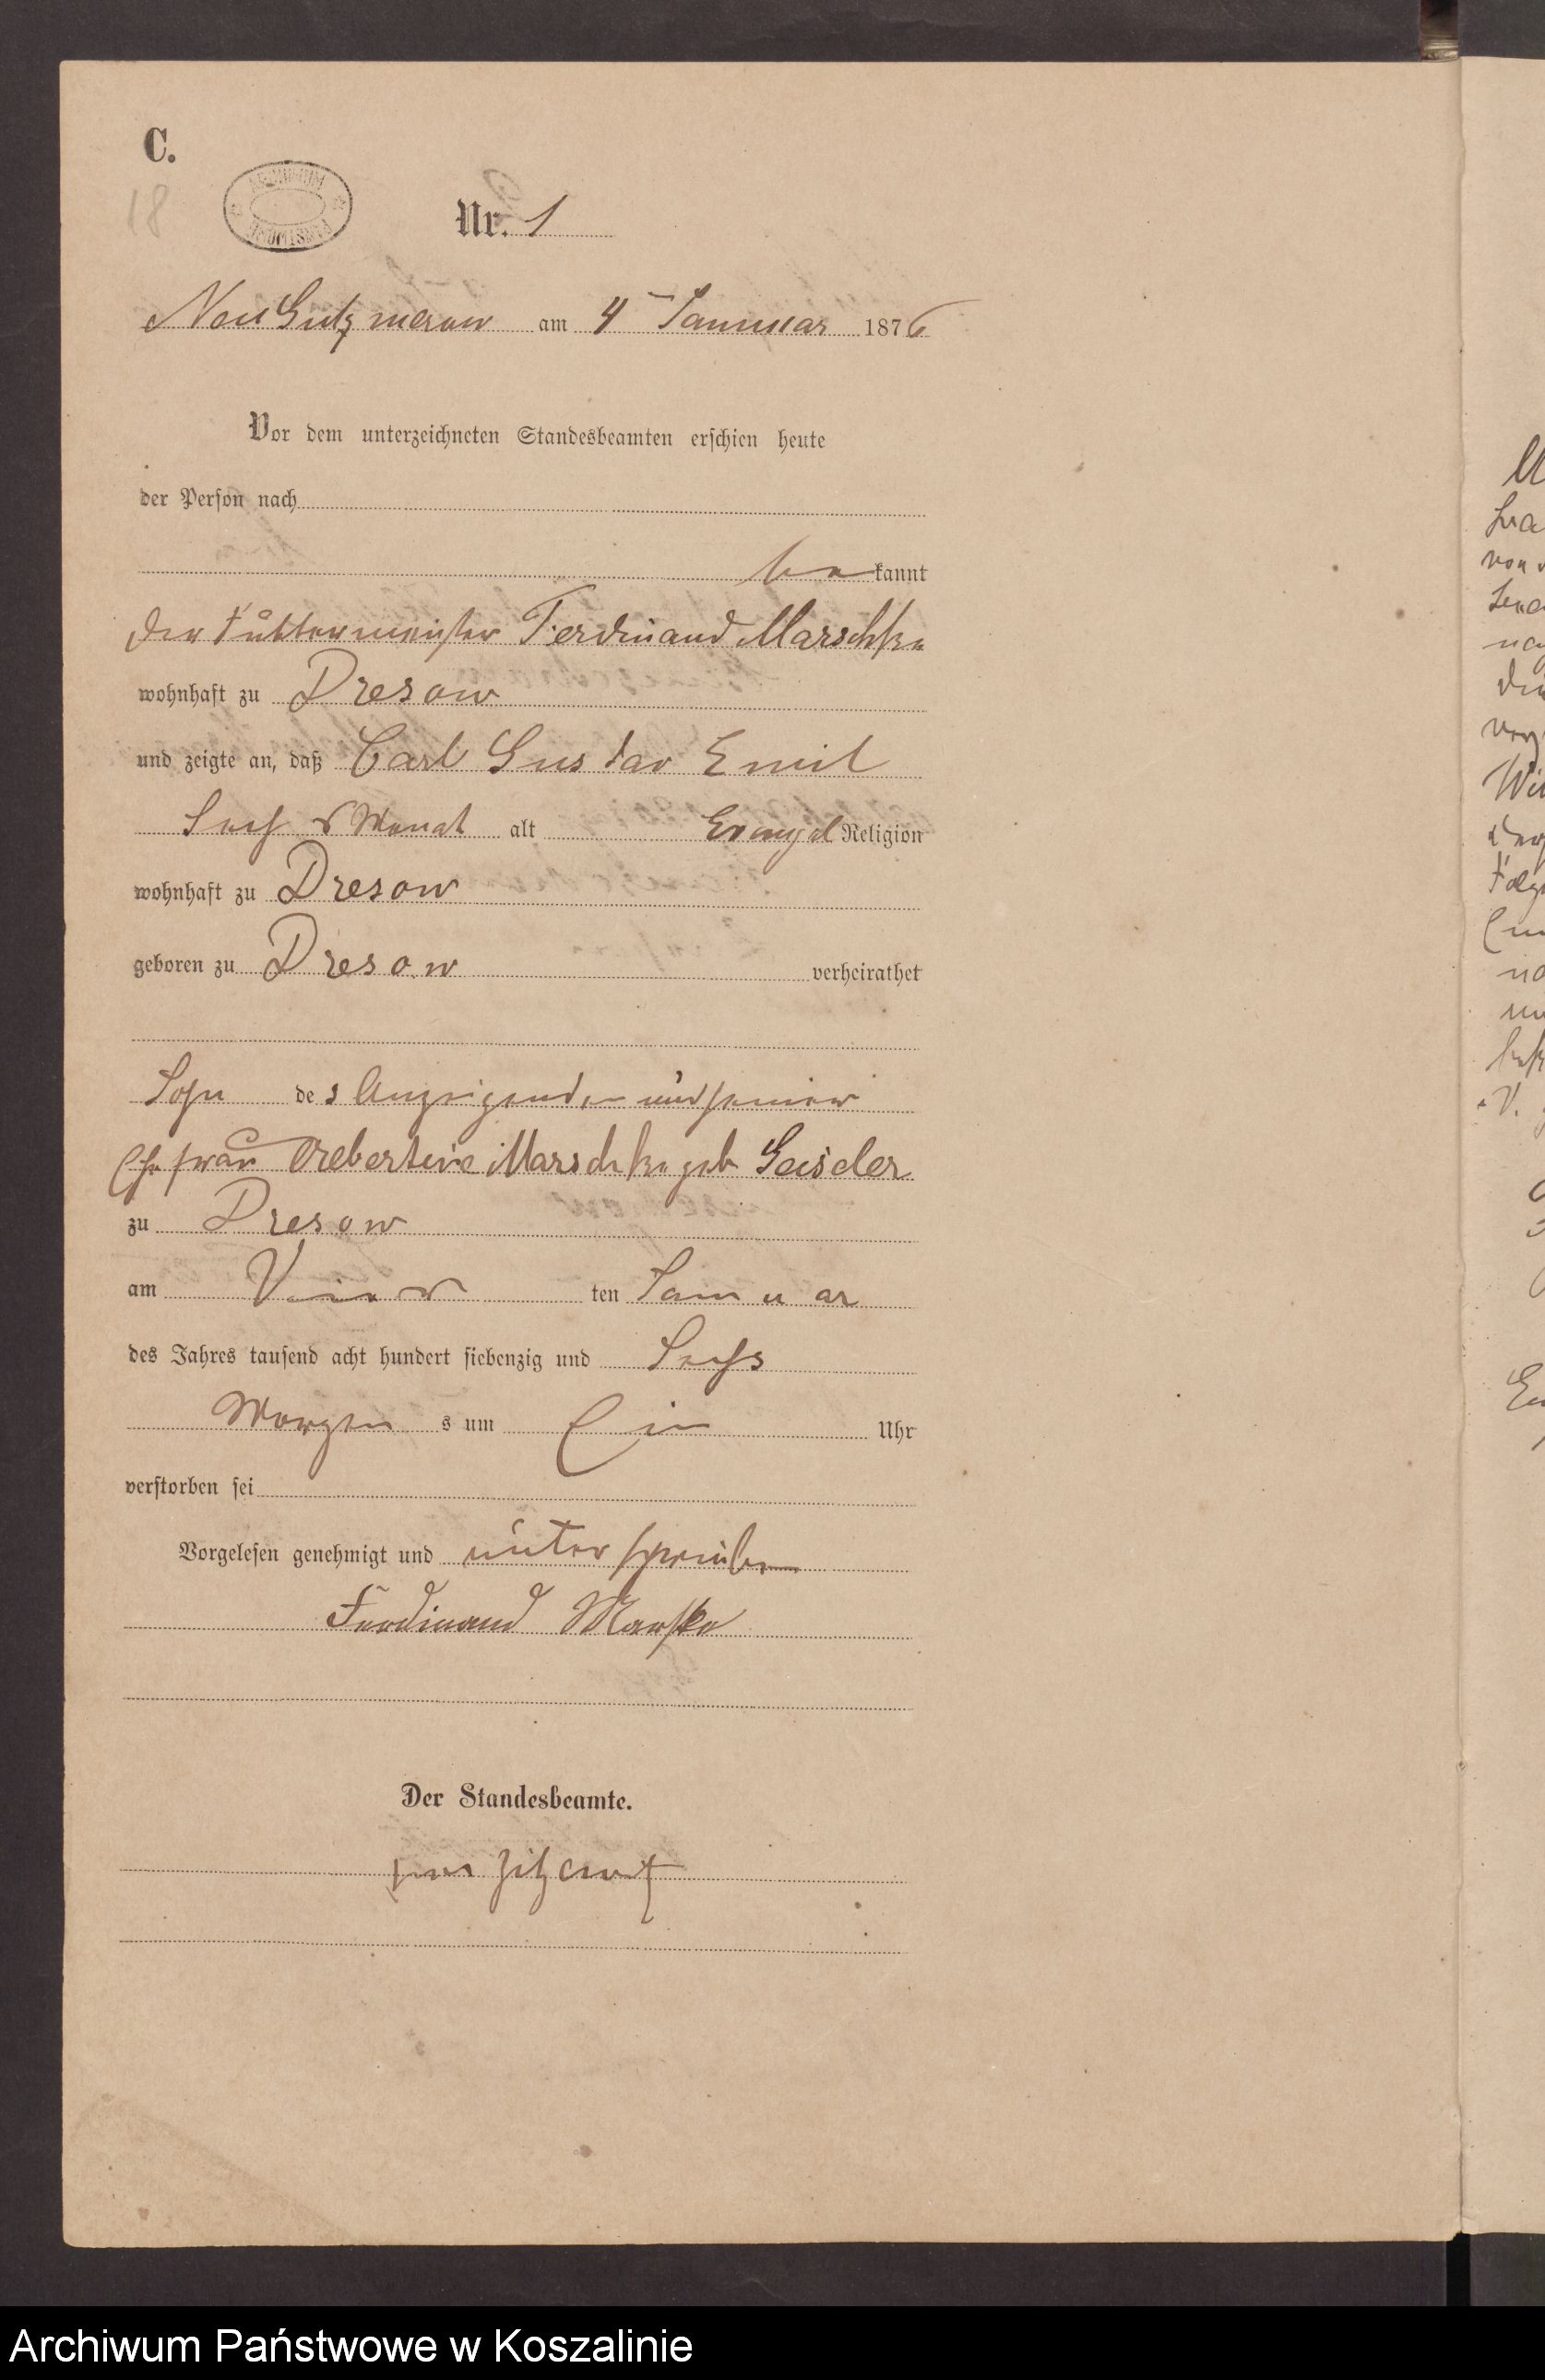 C.
18
ARCHIWUM
Nr. 1
Neu Gutzmerow am 4 Januar 1876
Vor dem unterzeichneten Standesbeamten erschien heute
der Person nach
be kannt
der Futtermeister Ferdinand Marschke
wohnhaft zu Dresow
und zeigte an, daß Carl Gustav Emil
Sechs Monat alt Evangel Religion
wohnhaft zu Dresow
geboren zu Dresow verheirathet
Sohn des Anzeigenden und seiner
Ehefrau Marschke geb Geisler
zu Dresow
am Vier ten Januar
des Jahres tausend acht hundert siebenzig und Sechs
Morgen s um Ein Uhr
verstorben sei
Vorgelesen genehmigt und unterschrieben
Ferdinand Marske
Der Standesbeamte.
von Zitzewitz
Archiwum Państwowe w Koszalinie